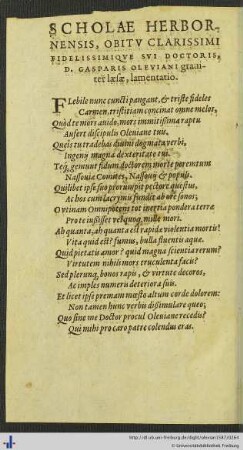 SCHOLAE HERBOR-
NENSIS, OBITV CLARISSIMI
FIDELISSIMIQVE SVI DOCTORIS,
D. GASPARIS OLEVIANI graui-
ter læsæ, lamentatio.
FLebile nunc cuncti pangant, & triste fideles
Carmen, tristitiam concinat omne melos,
Quòd te mors auido, mors immitissima raptu
Aufert discipulis Oleuiane tuis,
Queis tu tradebas diuini dogmata verbi,
Ingenij magna dexteritate tui.
Teq́, gemunt fidum doctorem morte peremtum
Nassouia Comites, Nassouij & populi.
Quilibet ipse suo prorumpit pectore questus,
Ac hos cum lacrymis fundit ab ore sonos;
O vtinam Omnipotens tot inertia pondera terræ
Pro te iussisset relinqui, mille mori.
Ah quanta, ah quanta est rapida violentia mortis!
Vita quid est? fumus, bulla fluentis aquæ.
Quid pietatis amor? quid magna scientia rerum?
Virtutem nihili mors truculenta facis?
Sed plerunq, bonos rapis, & virtute decoros,
Ac imples numeris deteriora suis.
Et licet ipse premam mœsto altum corde dolorem:
Non tamen hunc verbis dissimulare queo;
Quo sine me Doctor procul Oleuiane recedis?
Qui mihi pro caro patre colendus eras.
http://dl.ub.uni-freiburg.de/diglit/olevian1587/0164
© Universitätsbibliothek Freiburg